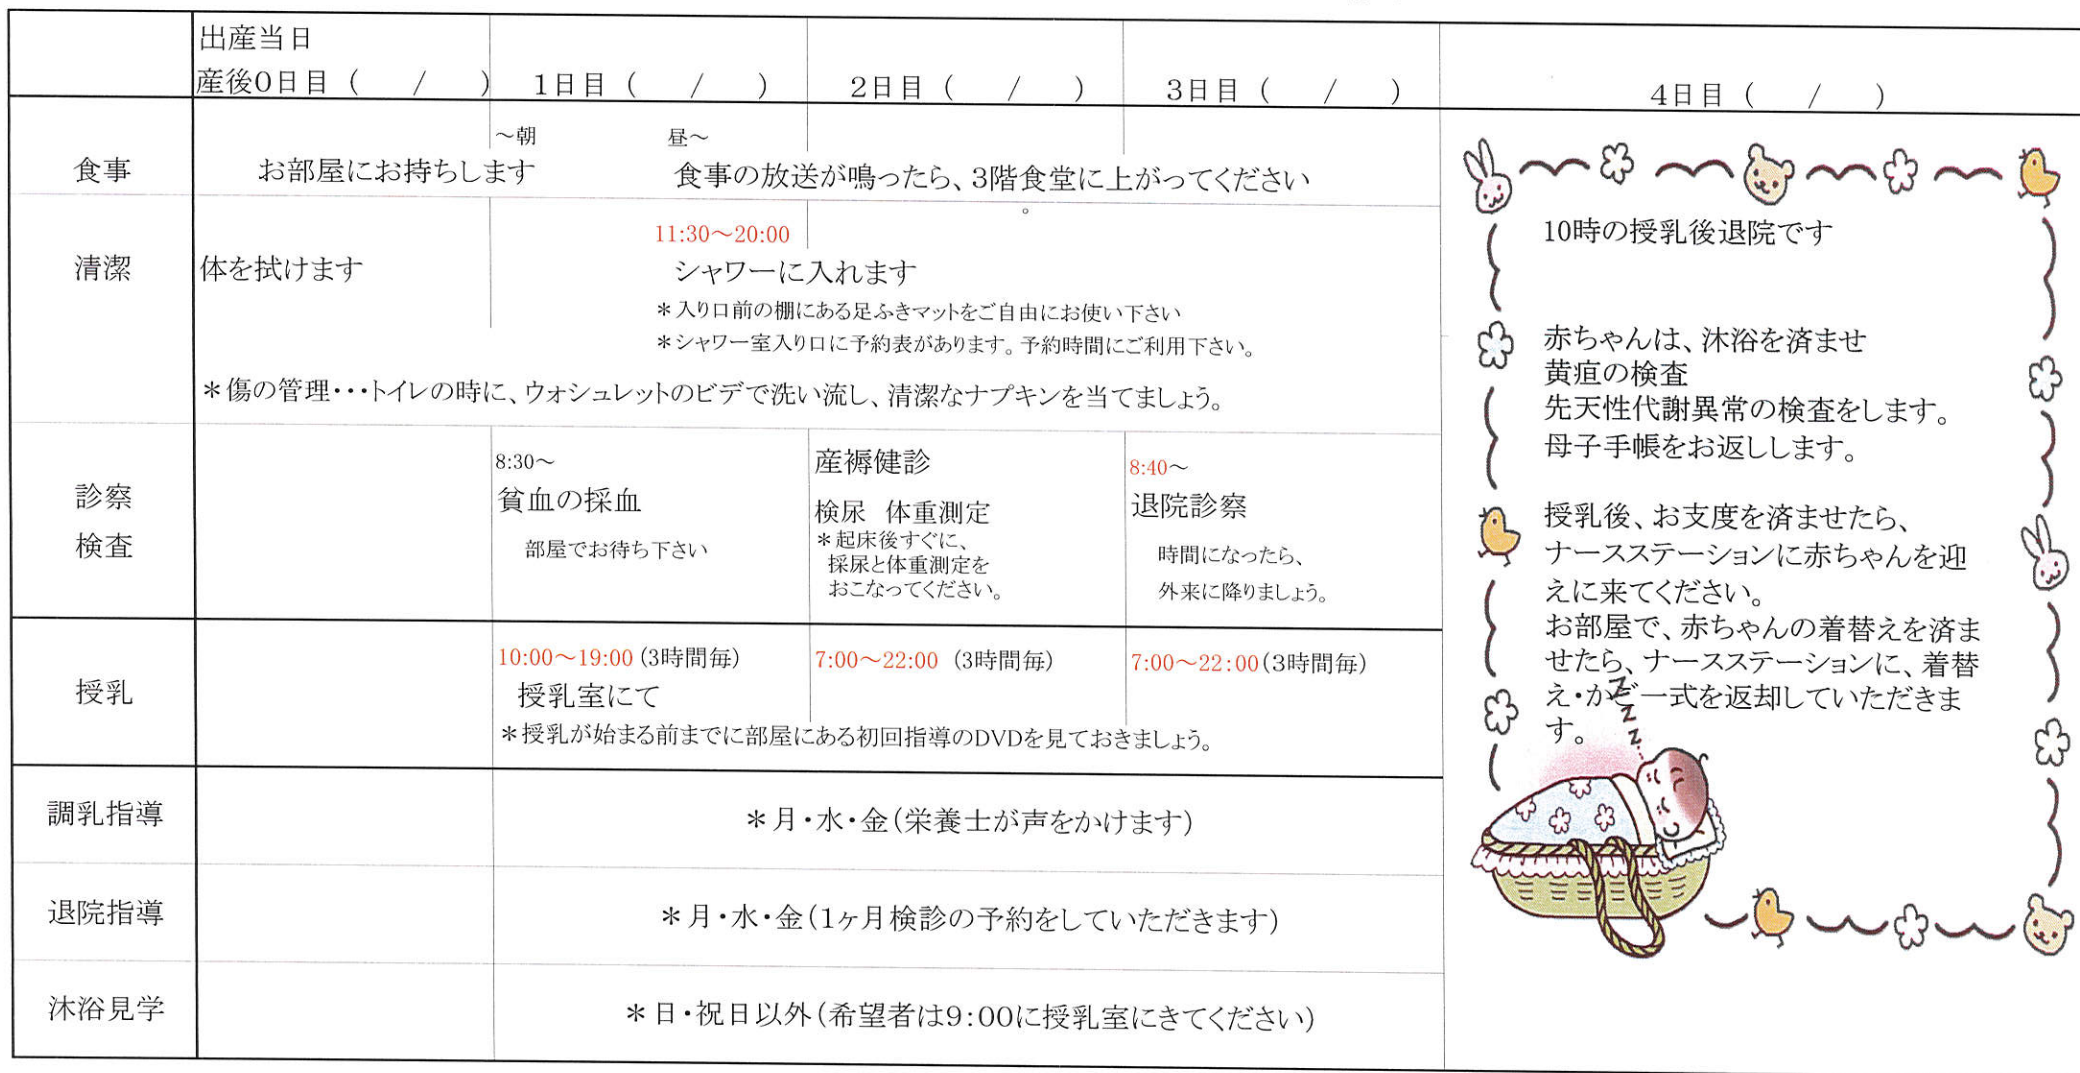 出産当日
産後0日目（　/　） 1日目（　/　） 2日目（　/　） 3日目（　/　） 4日目（　/　）
～朝 昼～
食事 お部屋にお持ちします 食事の放送が鳴ったら、3階食堂に上がってください
。
11:30～20:00
清潔 体を拭けます シャワーに入れます
＊入り口前の棚にある足ふきマットをご自由にお使い下さい
＊シャワー室入り口に予約表があります。予約時間にご利用下さい。
＊傷の管理・・・トイレの時に、ウォシュレットのビデで洗い流し、清潔なナプキンを当てましょう。
診察
検査
8:30～
貧血の採血
部屋でお待ち下さい
産褥健診
検尿 体重測定
＊起床後すぐに、
採尿と体重測定を
おこなってください。
8:40～
退院診察
時間になったら、
外来に降りましょう。
授乳
10:00～19:00 (3時間毎) 7:00～22:00 (3時間毎) 7:00～22:00(3時間毎)
授乳室にて
＊授乳が始まる前までに部屋にある初回指導のDVDを見ておきましょう。
調乳指導 ＊月・水・金(栄養士が声をかけます)
退院指導 ＊月・水・金(1ヶ月検診の予約をしていただきます)
沐浴見学 ＊日・祝日以外(希望者は9:00に授乳室にきてください)
10時の授乳後退院です
赤ちゃんは、沐浴を済ませ
黄疸の検査
先天性代謝異常の検査をします。
母子手帳をお返しします。
授乳後、お支度を済ませたら、
ナースステーションに赤ちゃんを迎
えに来てください。
お部屋で、赤ちゃんの着替えを済ま
せたら、ナースステーションに、着替
え・かご一式を返却していただきま
す。
Z
Z
Z